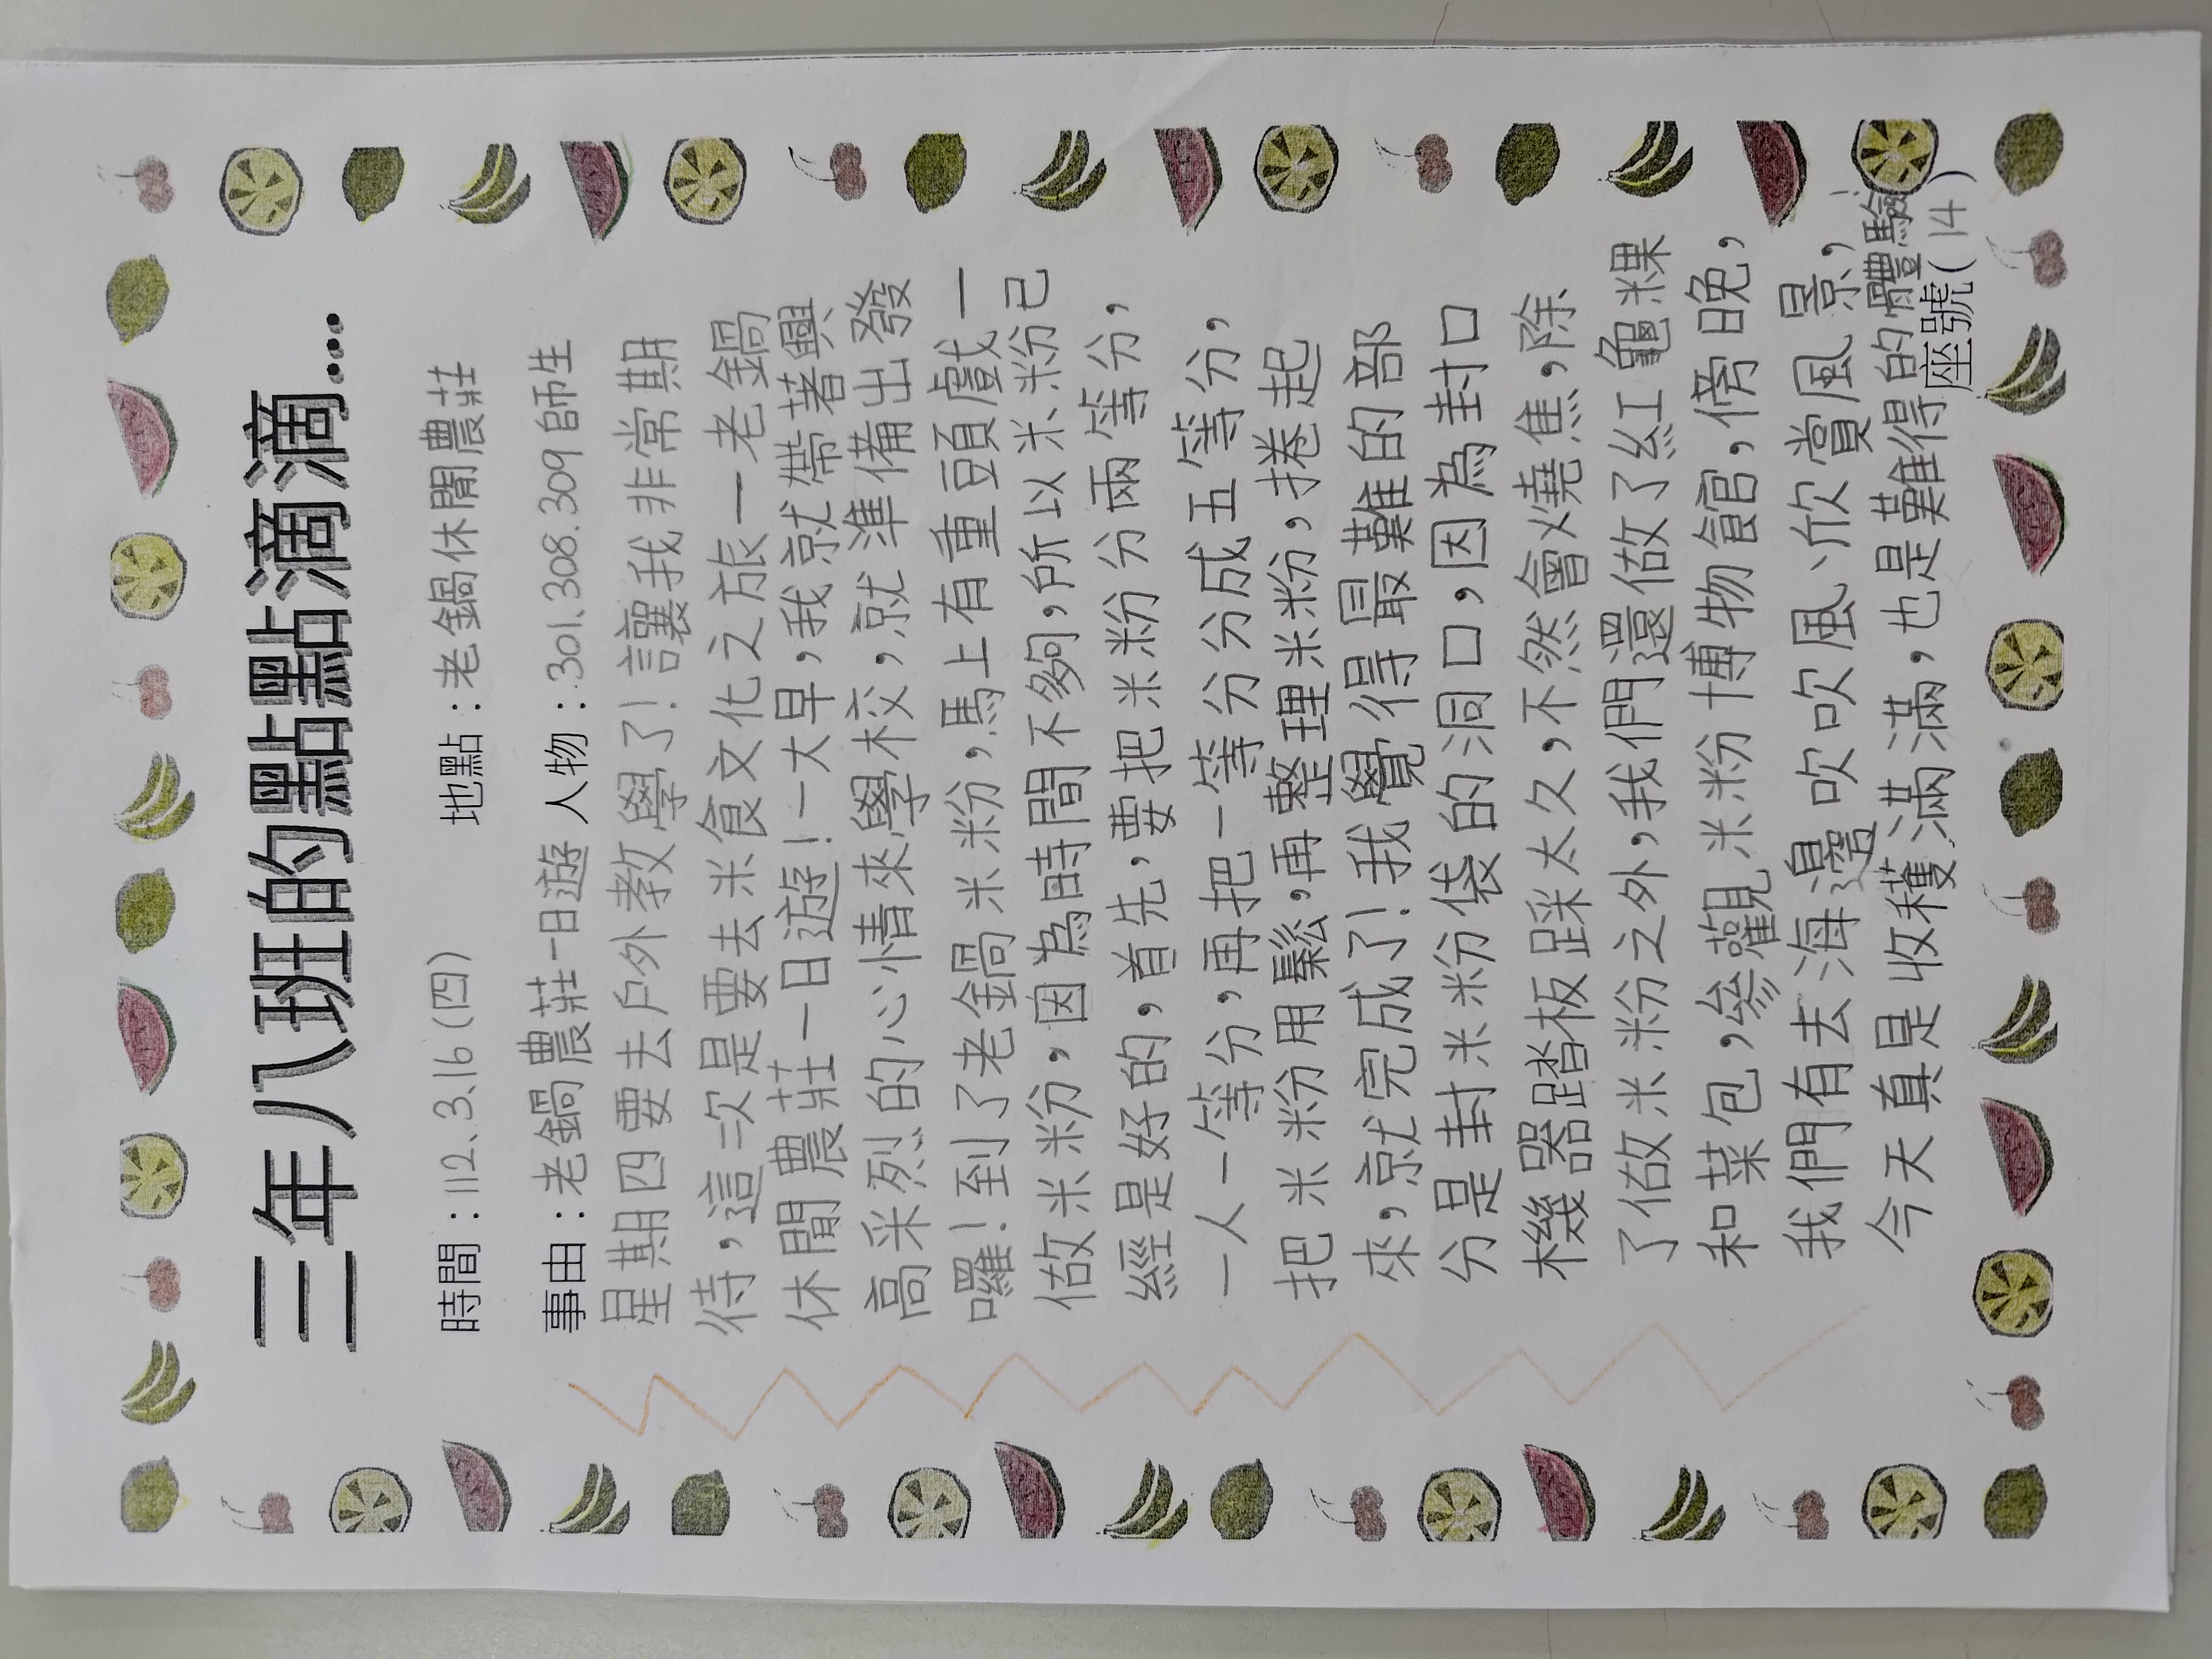 三年八班的點點滴滴....
時間：112.3.16(四) 地點：老鍋休閒農莊
事由：老鍋農莊一日遊 人物：301.308.309師生
星期四要去戶外教學了!讓我非常期
待，這次是要去米食文化之旅—老鍋
休閒農莊一日遊!一大早，我就帶著興
高采烈的心情來學校，就準備出發
囉!到了老鍋米粉，馬上有重頭戲—
做米粉，因為時間不夠，所以米粉已
經是好的，首先，要把米粉分兩等分，
一人一等分，再把一等分分成五等分，
把米粉用鬆，再整理米粉，捲起
來，就完成了!我覺得最難的部
分是封米粉袋的洞口，因為封口
機器踏板踩太久，不然會燒焦，除
了做米粉之外，我們還做了紅龜粿
和菜包，參觀米粉博物館，傍晚，
我們有去海邊吹吹風、欣賞風景，
今天真是收穫滿滿，也是難得的體驗。
座號(14)